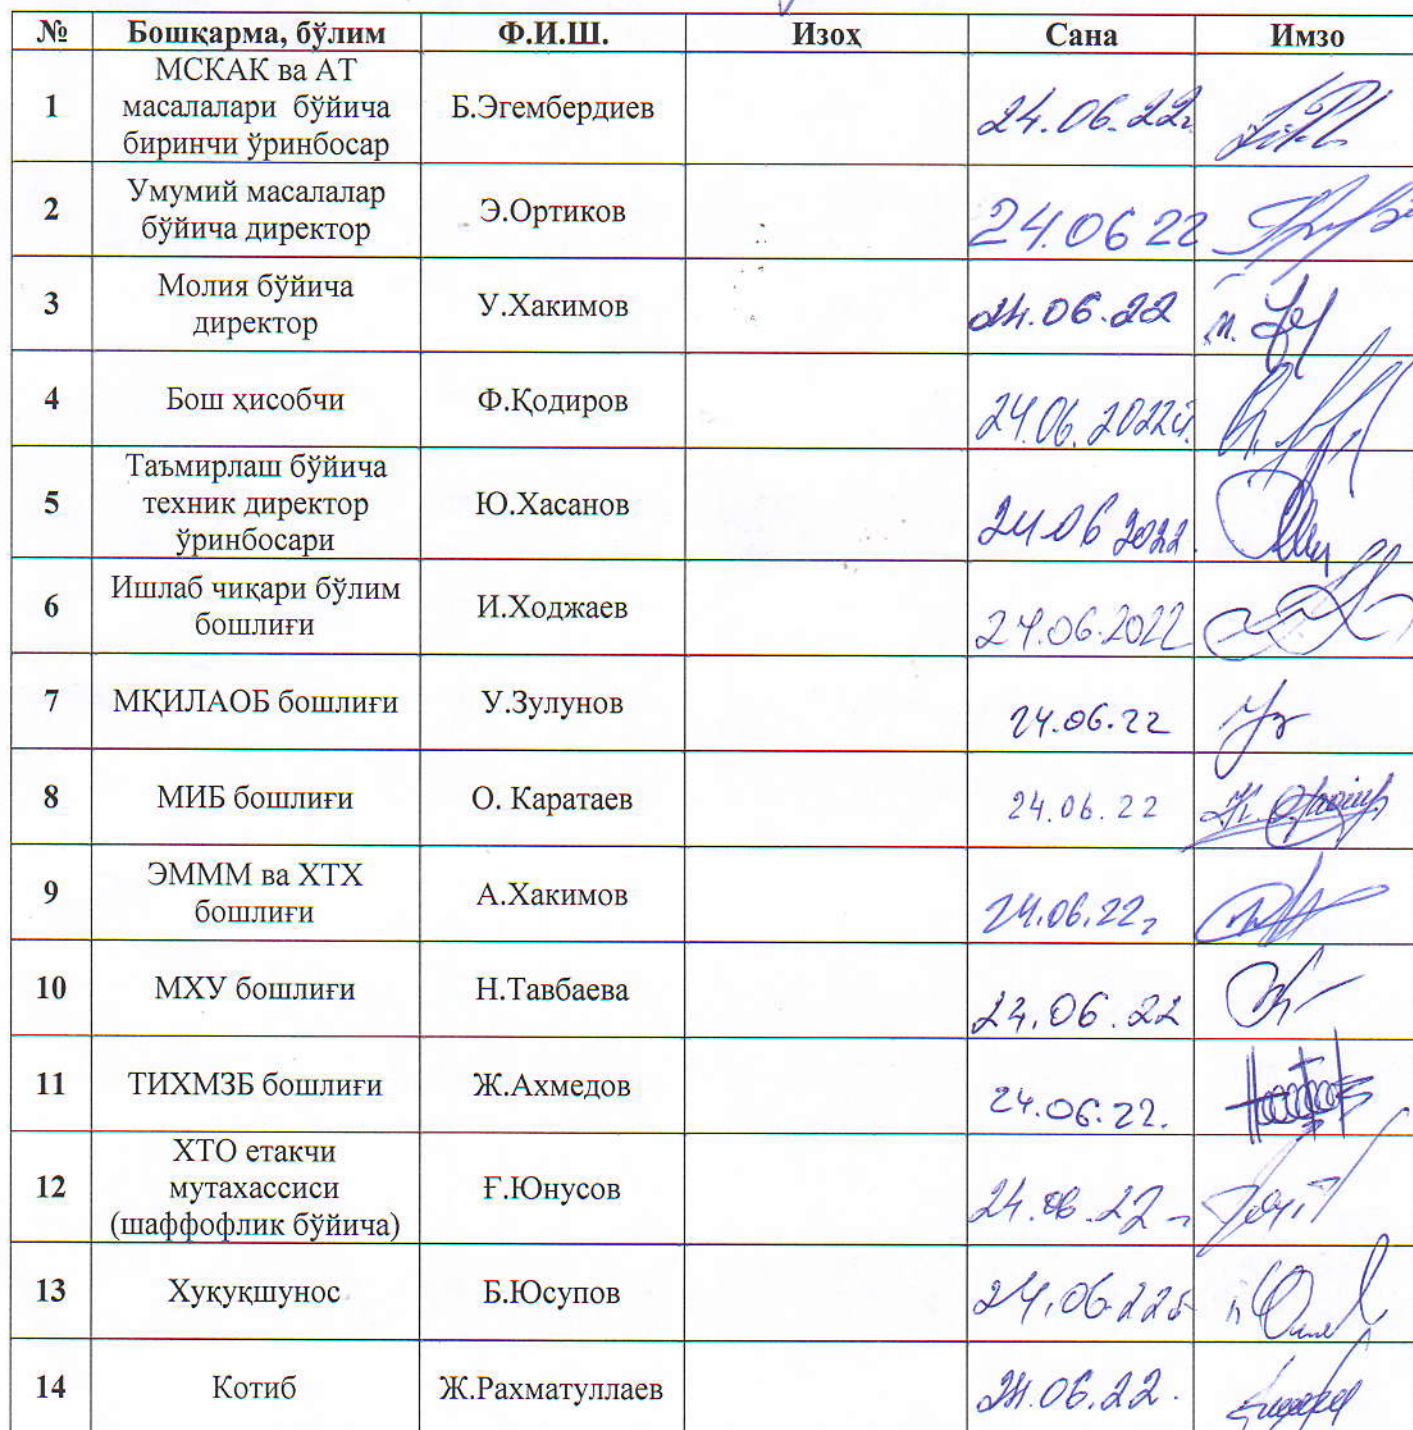 № Бошқарма, бўлим Ф.И.Ш. Изоҳ Сана Имзо
1 МСКАК ва АТ масалалари бўйича биринчи ўринбосар Б.Эгембердиев 24.06.22г
2 Умумий масалалар бўйича директор Э.Ортиков 24.06 22
3 Молия бўйича директор У.Хакимов 24.06.22
4 Бош ҳисобчи Ф.Қодиров 24.06.2022й.
5 Таъмирлаш бўйича техник директор ўринбосари Ю.Хасанов 24.06 2022.
6 Ишлаб чиқари бўлим бошлиғи И.Ходжаев 24.06.2022
7 МҚИЛАОБ бошлиғи У.Зулунов 24.06.22
8 МИБ бошлиғи О. Каратаев 24.06.22
9 ЭМММ ва ХТХ бошлиғи А.Хакимов 24.06.22г
10 МХУ бошлиғи Н.Тавбаева 24.06.22
11 ТИХМЗБ бошлиғи Ж.Ахмедов 24.06.22.
12 ХТО етакчи мутахассиси (шаффофлик бўйича) Ғ.Юнусов 24.06.22
13 Хуқуқшунос Б.Юсупов 24.06.22
14 Котиб Ж.Рахматуллаев 24.06.22.